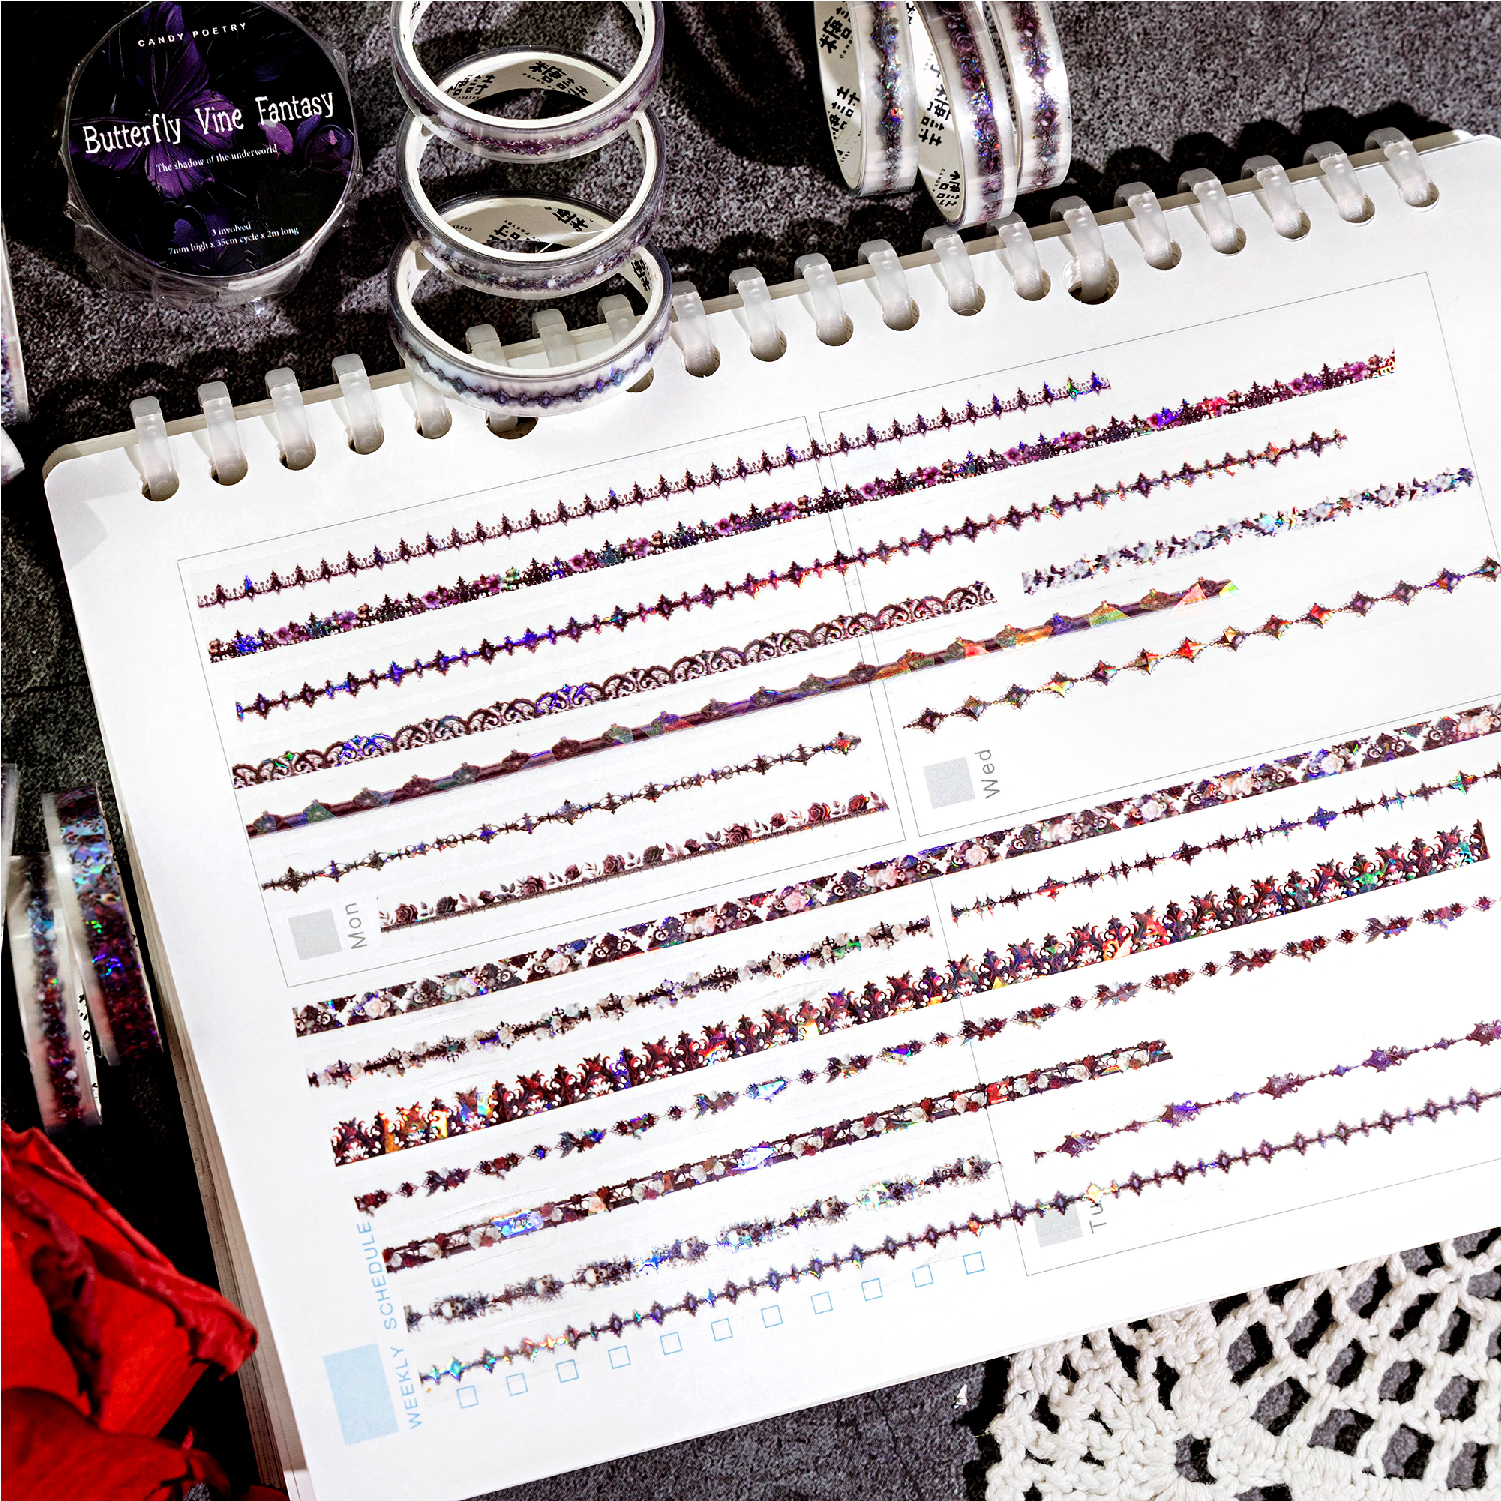 CANDY POETRY
Butterfly Vine Fantasy
The shadow of the underworld
3 involved
7mm high x 35cm cycle x 2m long
糖詩
糖詩
糖詩
Wed
Mon
Tu
WEEKLY SCHEDULE